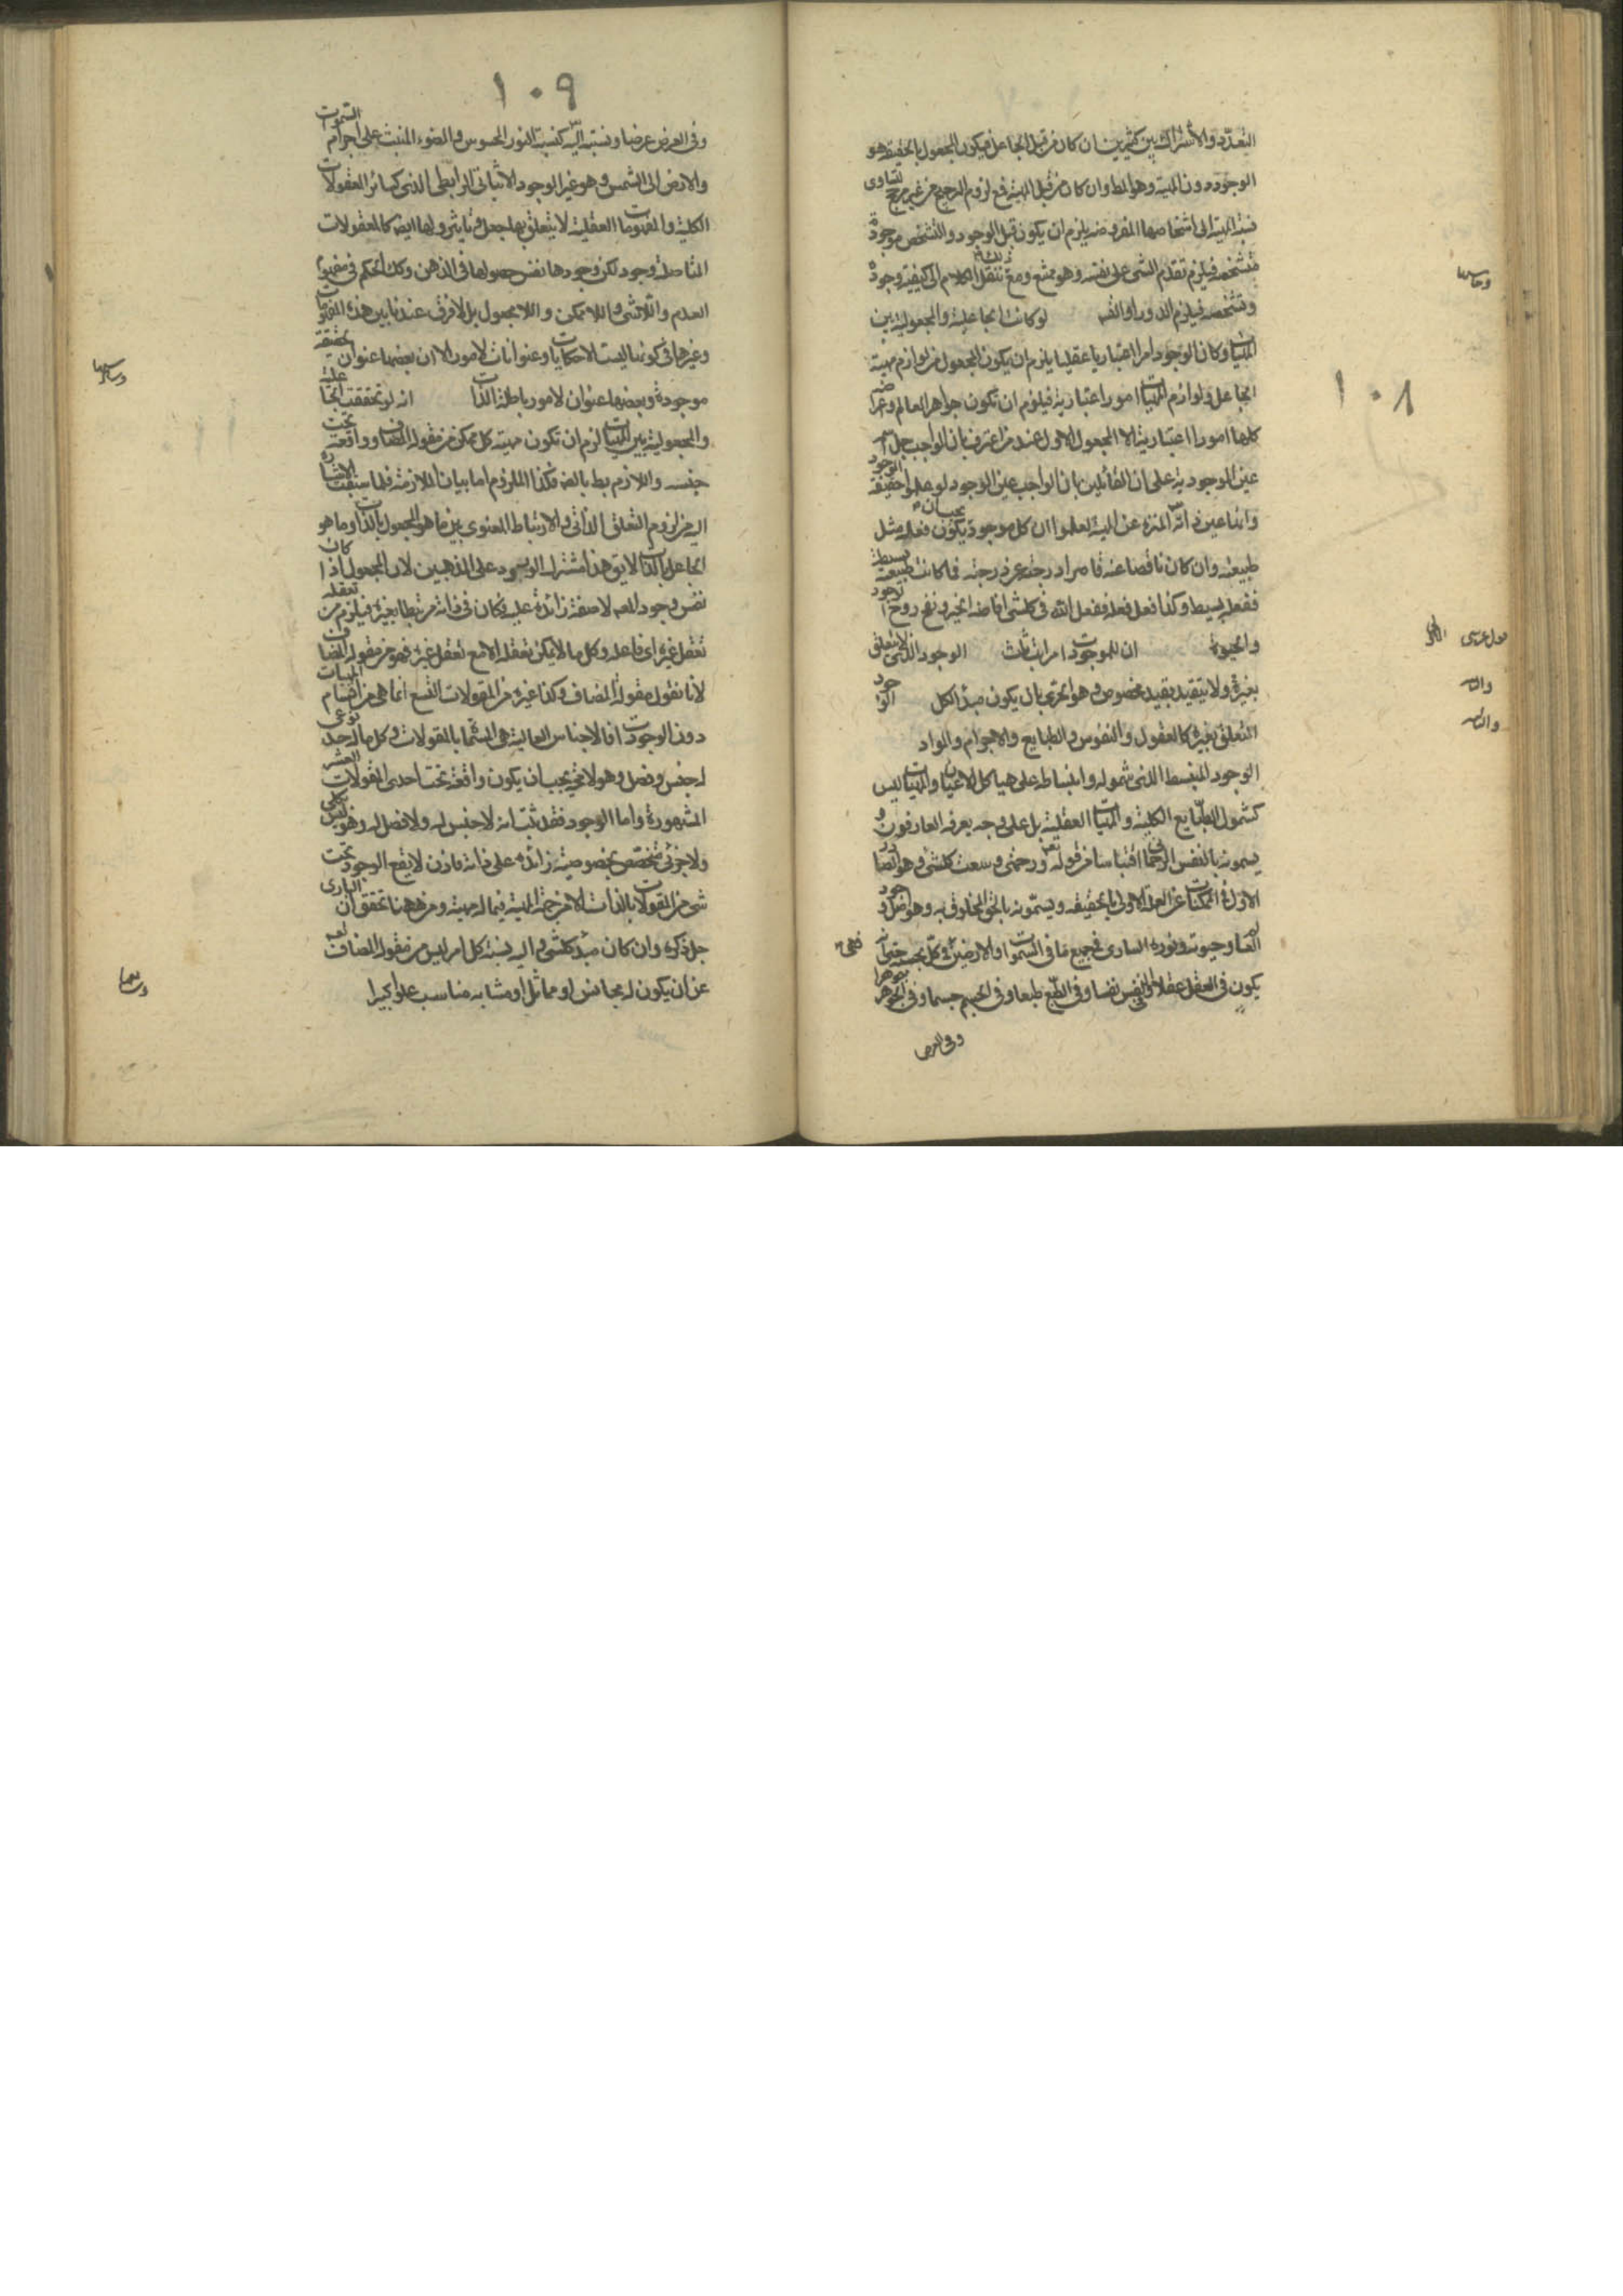 ١٠٨
التعدد والاشتراك بين كثيرين ان كان من قبل الجاعل فيكون المجعول بالحقيقة هو
الوجود دون المهية وهو المط وان كان من قبل المهية فمع لزوم الترجيح من غير مرجح لتساوى
نسبة المهية الى اشخاصها المفروضة يلزم ان يكون قبل الوجود والتشخص موجودة
متشخصة فيلزم تقدم الشى على نفسه وهو ممتنع ومع ذلك ننقل الكلام الى كيفية وجوده
وتشخصه فيلزم الدور او التس وخامسها لو كانت الجاعلية والمجعولية بين
المهيات وكان الوجود امرا اعتباريا عقليا يلزم ان يكون المجعول من لوازم مهية
الجاعل ولوازم المهيات امور اعتبارية فيلزم ان تكون جواهر العالم وعراضه
كلها امورا اعتبارية الا المجعول الاول عند من اعترف بان الواجب جل اسمه
عين الموجودية على ان القائلين بان الواجب عين الوجود لو علموا حقيقة الوجود
وانها عين ذاته المنزه عن المهية لعلموا ان كل موجود يجب ان يكون فعله مثل
طبيعته وان كان ناقصا عنه قاصرا درجته عن درجته فما كانت طبيعته بسيطة
ففعله بسيط وكذا فعل فعله ففعل الله فى كلشى افاضة الخير ونفخ روح الوجود
والحيوة قول عرشى ان للموجودات مراتب ثلث الاولى الوجود الذى لا يتعلق
بغيره ولا يتقيد بقيد مخصوص وهو الحرى بان يكون مبدأ الكل والثانية الوجود
المتعلق بغيره كالعقول والنفوس والطبايع والاجرام والمواد والثالثة
الوجود المنبسط الذى شموله وانبساطه على هياكل الاعيان والمهيات ليس
كشمول الطبايع الكلية والمهيات العقلية بل على وجه يعرفه العارفون و
يسمونه بالنفس الرحمانى اقتباسا من قوله تعه ورحمتى وسعت كلشى وهو الصادر
الاول فى الممكنات عن العلة الاولى بالحقيقة ويسمونه بالحق المخلوق به وهو اصل وجود
العالم وحيوته ونوره السارى فى جميع ما فى السموات والارضين فى كل بحسبه حتى انه
يكون فى العقل عقلا وفى النفس نفسا وفى الطبع طبعا وفى الجسم جسما وفى الجوهر جوهرا
وفى العرض
١٠٩
وفى العرض عرضا ونسبته اليه كنسبة النور المحسوس والضوء المنبث على اجرام السموات
والارض الى الشمس وهو غير الوجود الاثباتى الرابطى الذى كسائر المعقولات
الكلية والمفهومات العقلية لا يتعلق بها جعل وتاثير ولها ايضا كالمعقولات
المتاصلة وجود لكن وجودها نفس حصولها فى الذهن وكك الحكم فى مفهوم
العدم واللاشى واللاممكن واللامجعول بل لا فرق عندنا بين هذه المفهومات
وغيرها فى كونها ليست الا حكايات وعنوانات لامور الا ان بعضها عنوان لحقيقة
موجودة وبعضها عنوان لامور باطلة الذات وسادسها انه لو تحققت الجاعلية
والمجعولية بين المهيات لزم ان تكون مهية كل ممكن من مقولة المضاف وواقعة تحت
جنسه واللازم بط بالضه فكذا الملزوم اما بيان الملازمة فلما سبقت الاشارة
اليه من لزوم التعلق الذاتى والارتباط المعنوى بين ما هو المجعول بالذات وما هو
الجاعل بالذات لا يق هذا مشترك الورود على المذهبين لان المجعول اذا كان
نفس وجود المعه لا صفة زائدة عليه فكان فى ذاته مرتبطا بغيره فيلزم من تعقله
تعقل غيره اى فاعله وكل ما لا يمكن تعقله الا مع تعقل غيره فهو من مقولة المضاف
لانا نقول مقولة المضاف وكذا غيره من المقولات التسع انما هى من اقسام المهيات
دون الوجودات اذ الاجناس العالية هى المسماة بالمقولات وكل ما له حد نوعى
له جنس وفصل وهو لا مح يجب ان يكون واقعة تحت احدى المقولات العشر
المشهورة واما الوجود فقد ثبت انه لا جنس له ولا فصل له وهو ليس بكلى
ولا جزئى متخصص بخصوصية زائدة على ذاته فاذن لا يقع الوجود تحت
شى من المقولات بالذات الا من جهة المهية فيما له مهية ومن ههنا تحقق ان البارى
جل ذكره وان كان مبدأ كلشى واليه نسبة كل امر ليس من مقولة المضاف تعه
عن ان يكون له مجانس او مماثل او مشابه او مناسب علوا كبيرا وسابعها